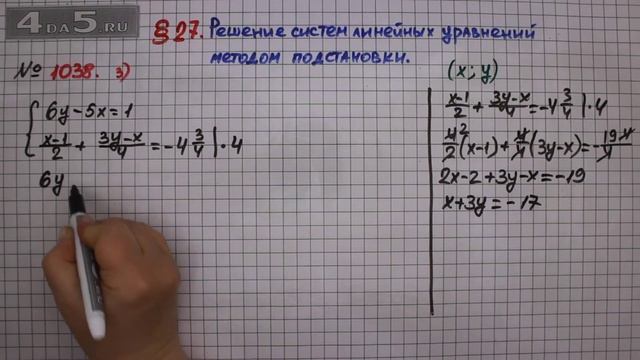 4DA5.RU
§27. Решение систем линейных уравнений
методом подстановки.
№ 1038. 3)
{ 6y-5x=1
(x-1)/2 + (3y-x)/4 = -4 3/4 |·4
6y
(x; y)
(x-1)/2 + (3y-x)/4 = -4 3/4 |·4
4²/2 (x-1) + 4/4 (3y-x) = -19·4/4
2x-2+3y-x=-19
x+3y=-17